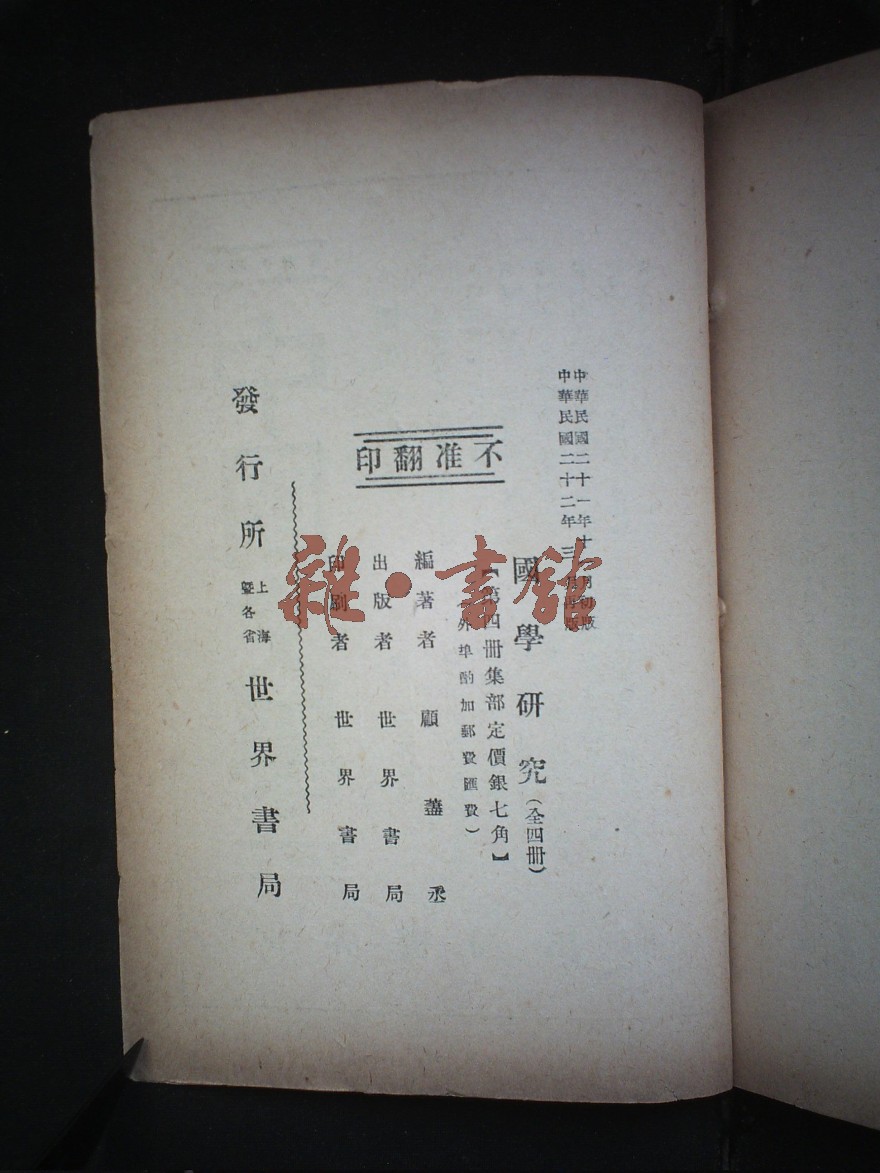 中華民國二十一年十月初版
中華民國二十二年三月再版
國學研究(全四冊)
【第四冊集部定價銀七角】
(外埠酌加郵費匯費)
不准翻印
編著者 顧藎丞
出版者 世界書局
印刷者 世界書局
發行所 上海暨各省 世界書局
雜·書館